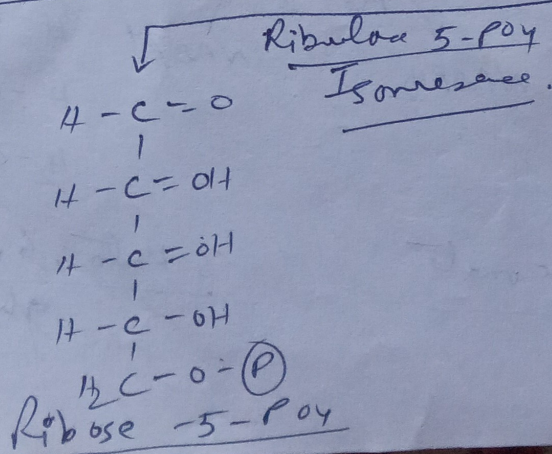 Ribulose 5-PO4
Isomerase.
H - C = O
H - C = OH
H - C = OH
H - C - OH
H2C - O - P
Ribose -5-PO4